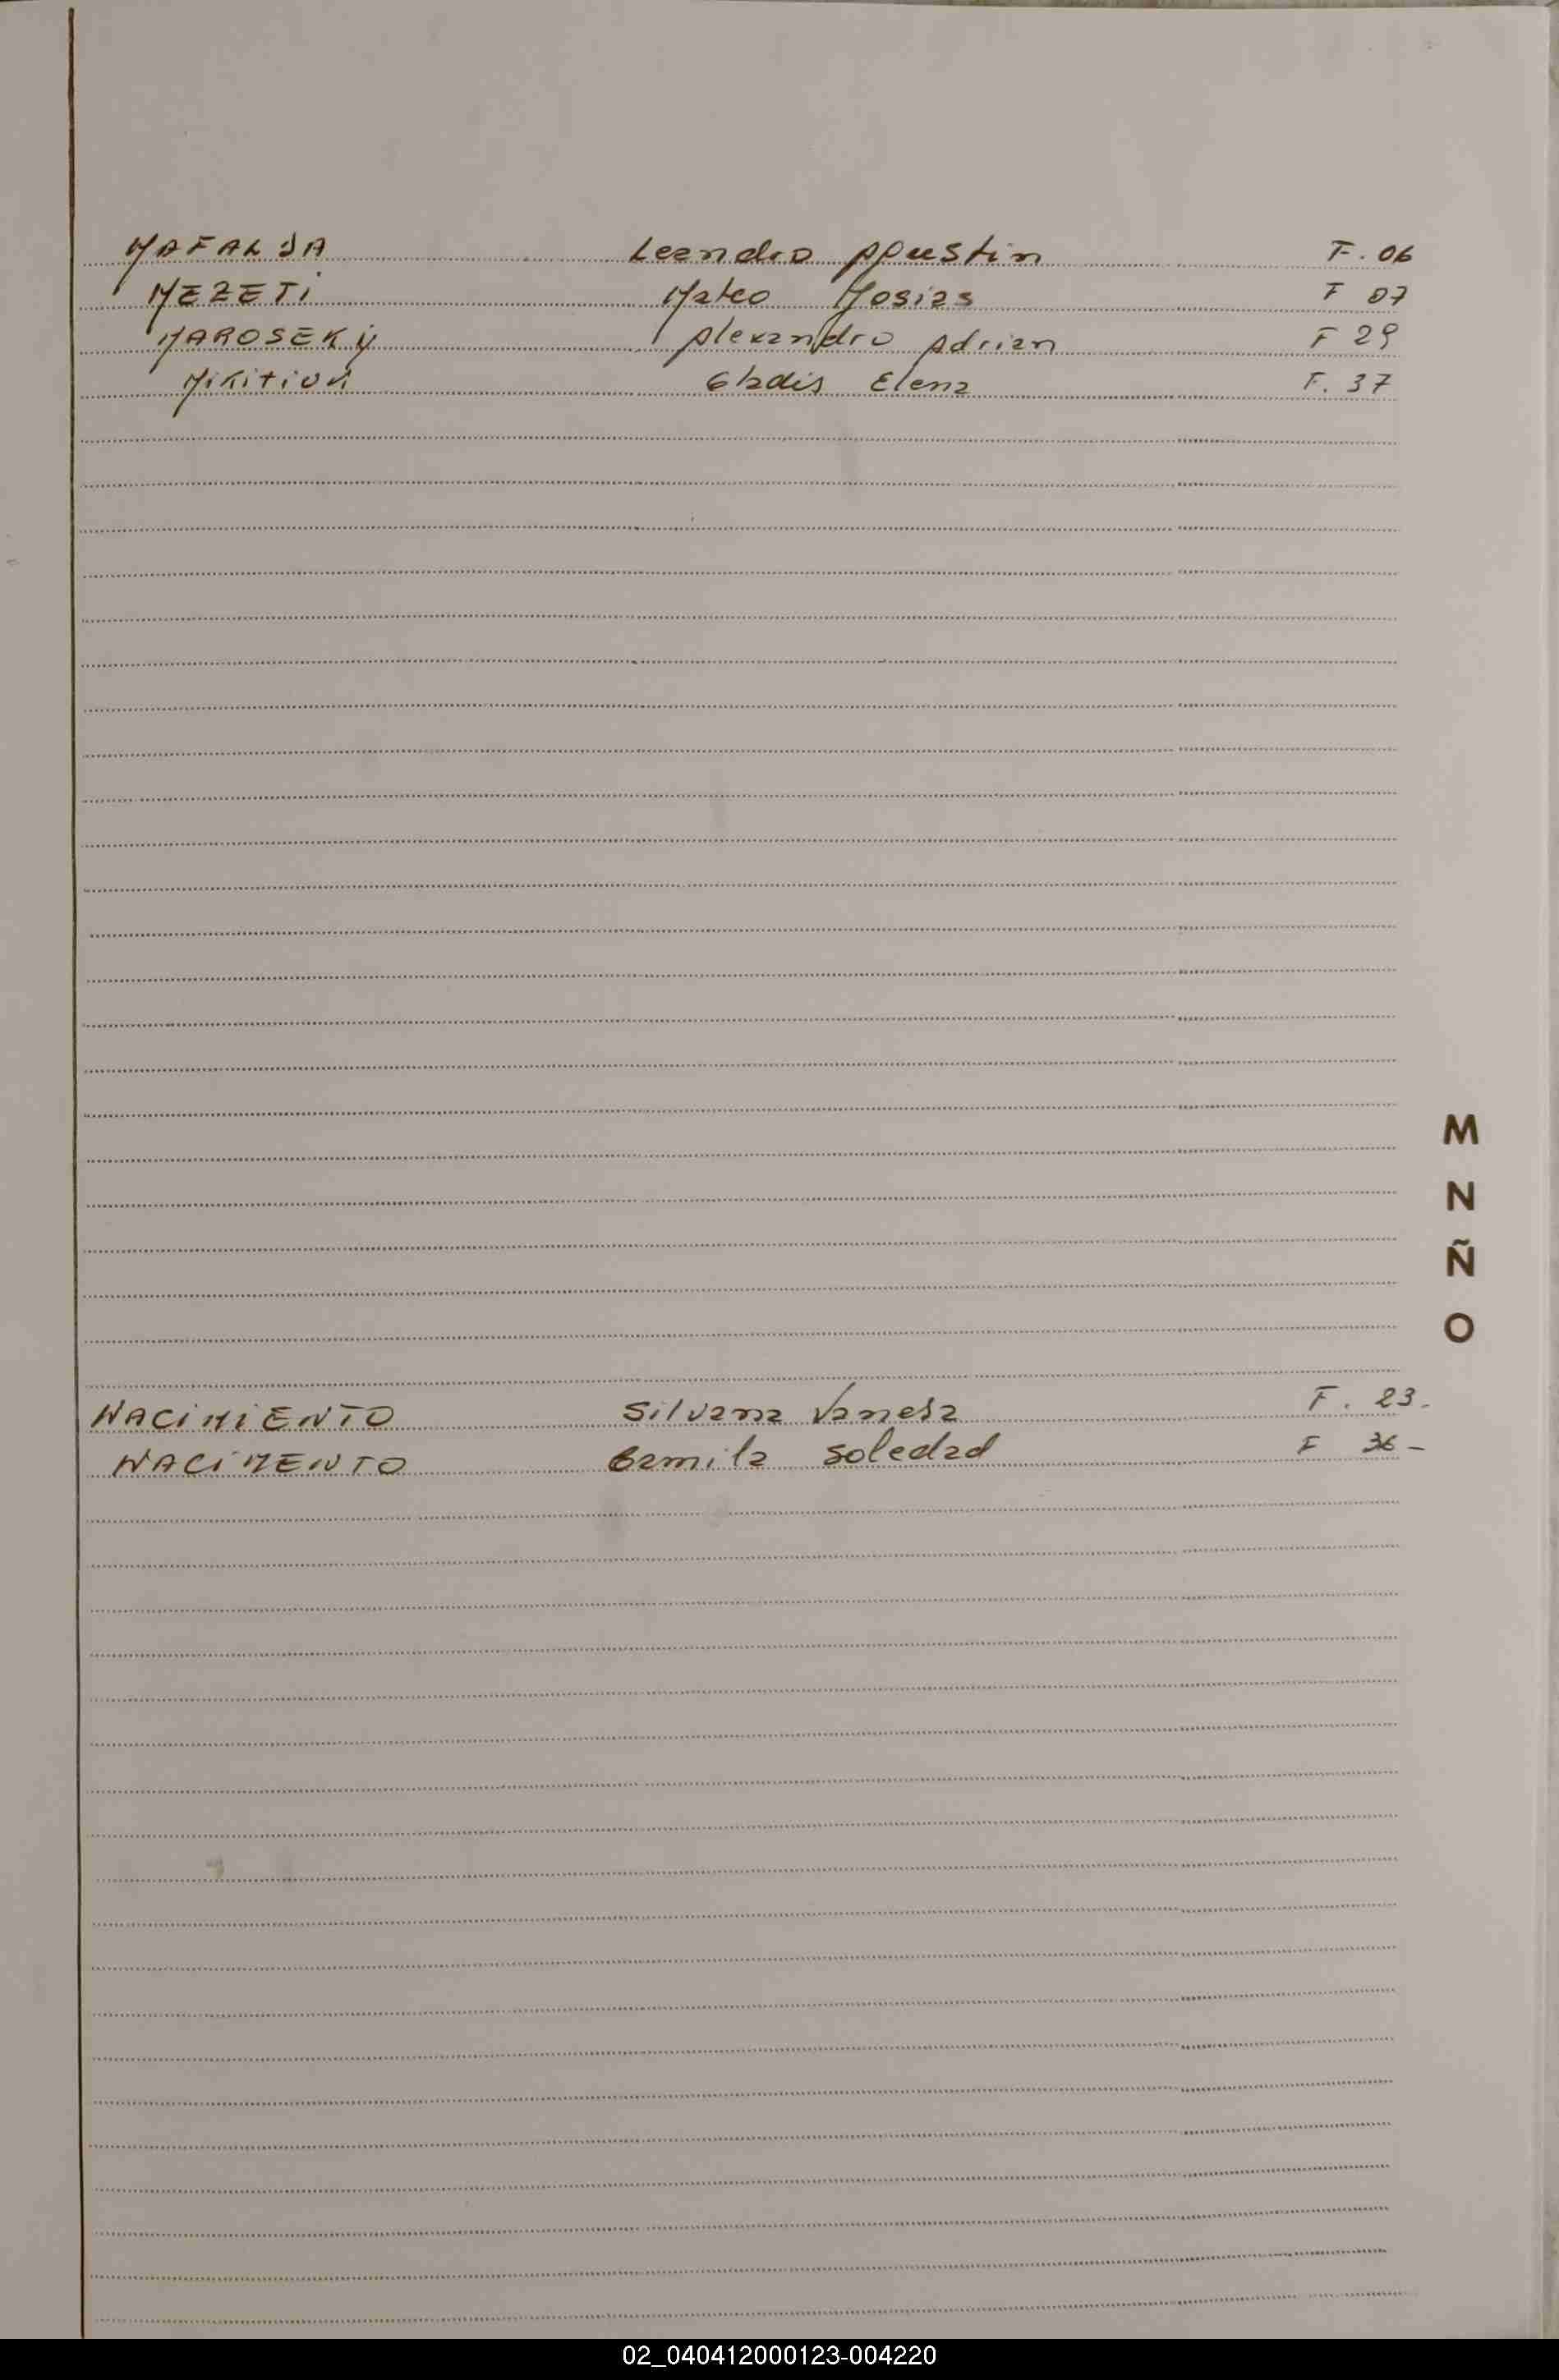 MAFALDA Leandro Agustin F. 06
MEZETI Mateo Josias F 07
MAROSEKY Alexandro Adrian F 29
MIKITIUK Gladis Elena F. 37
M
N
Ñ
O
NACIMIENTO Silvana Vanesa F. 23.
NACIMENTO Camila Soledad F 36-
02_040412000123-004220